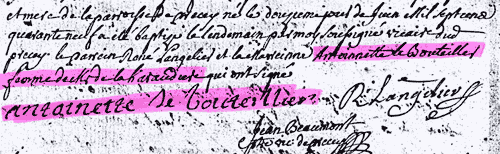 et mere de la parroisse de precey né le douzieme jour de Juin Mil Sept cens
quarante neuf a esté baptisé le lendemain par moy soussigné vicaire dud
precey le parein René Langelier et la mareinne Antoinette le Bouteiller
femme de Mr de la heraudiere qui ont signé
antoinette Le bouteillier R Langelier
Jean Beaumont
de precey